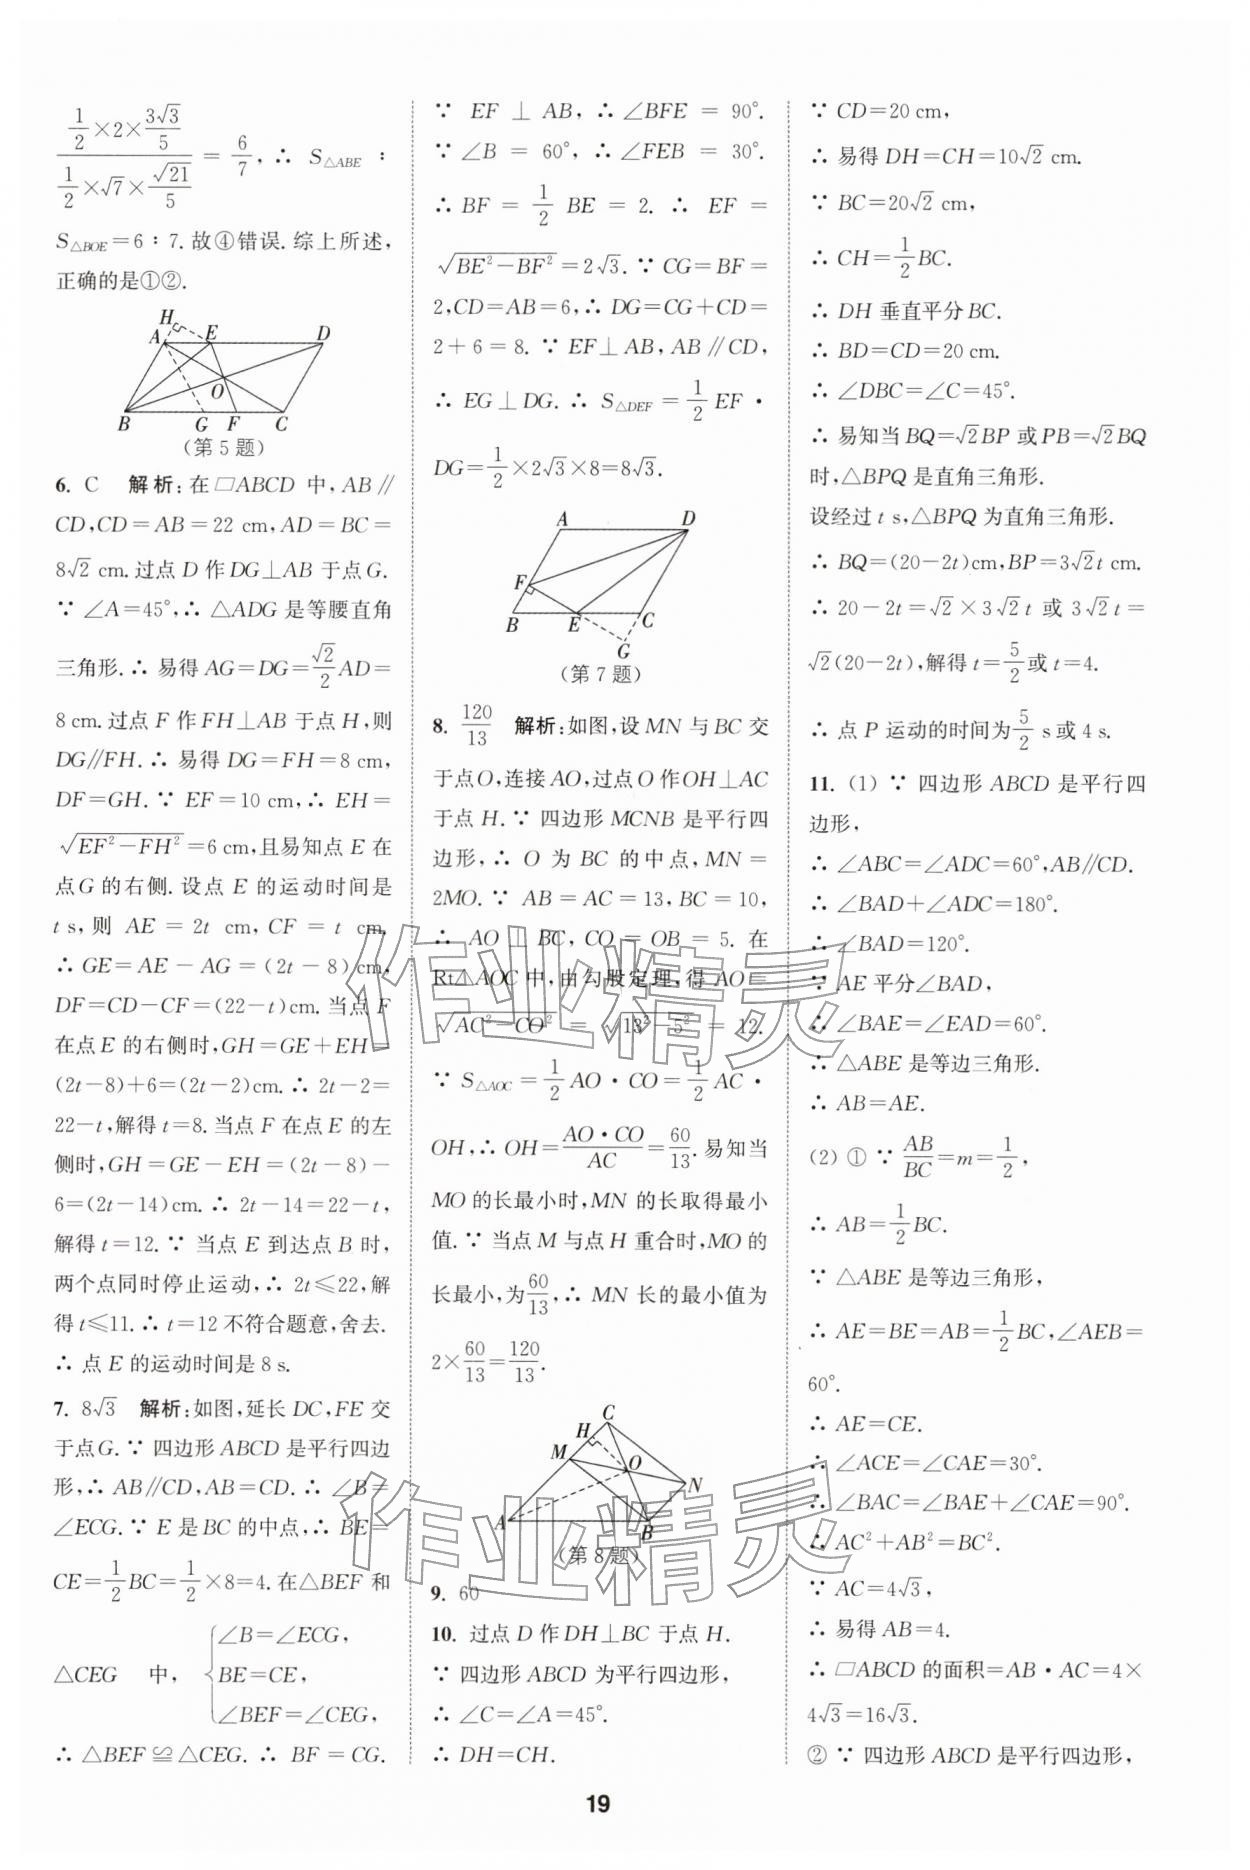 (1/2×2×3√3/5)/(1/2×√7×√21/5)=6/7,∴ S△ABE :
S△BOE=6:7.故④错误.综上所述,
正确的是①②.
H
A E D
O
B G F C
(第5题)
6. C 解析:在▱ABCD 中,AB∥
CD,CD=AB=22 cm,AD=BC=
8√2 cm.过点 D 作 DG⊥AB 于点 G.
∵ ∠A=45°,∴ △ADG 是等腰直角
三角形.∴ 易得 AG=DG=√2/2AD=
8 cm.过点 F 作 FH⊥AB 于点 H,则
DG∥FH.∴ 易得 DG=FH=8 cm,
DF=GH.∵ EF=10 cm,∴ EH=
√(EF²-FH²)=6 cm,且易知点 E 在
点 G 的右侧.设点 E 的运动时间是
t s,则 AE=2t cm,CF=t cm,
∴ GE=AE-AG=(2t-8)cm,
DF=CD-CF=(22-t)cm.当点 F
在点 E 的右侧时,GH=GE+EH=
(2t-8)+6=(2t-2)cm.∴ 2t-2=
22-t,解得 t=8.当点 F 在点 E 的左
侧时,GH=GE-EH=(2t-8)-
6=(2t-14)cm.∴ 2t-14=22-t,
解得 t=12.∵ 当点 E 到达点 B 时,
两个点同时停止运动,∴ 2t≤22,解
得 t≤11.∴ t=12 不符合题意,舍去.
∴ 点 E 的运动时间是 8 s.
7. 8√3 解析:如图,延长 DC,FE 交
于点 G.∵ 四边形 ABCD 是平行四边
形,∴ AB∥CD,AB=CD.∴ ∠B=
∠ECG.∵ E 是 BC 的中点,∴ BE=
CE=1/2BC=1/2×8=4.在△BEF 和
△CEG 中,{∠B=∠ECG,
BE=CE,
∠BEF=∠CEG,
∴ △BEF≌△CEG.∴ BF=CG.
∵ EF⊥AB,∴ ∠BFE=90°.
∵ ∠B=60°,∴ ∠FEB=30°.
∴ BF=1/2BE=2.∴ EF=
√(BE²-BF²)=2√3.∵ CG=BF=
2,CD=AB=6,∴ DG=CG+CD=
2+6=8.∵ EF⊥AB,AB∥CD,
∴ EG⊥DG.∴ S△DEF=1/2EF·
DG=1/2×2√3×8=8√3.
A D
F
B E C
G
(第7题)
8. 120/13 解析:如图,设 MN 与 BC 交
于点 O,连接 AO,过点 O 作 OH⊥AC
于点 H.∵ 四边形 MCNB 是平行四
边形,∴ O 为 BC 的中点,MN=
2MO.∵ AB=AC=13,BC=10,
∴ AO⊥BC,CO=OB=5.在
Rt△AOC 中,由勾股定理,得 AO=
√(AC²-CO²)=√(13²-5²)=12.
∵ S△AOC=1/2AO·CO=1/2AC·
OH,∴ OH=AO·CO/AC=60/13.易知当
MO 的长最小时,MN 的长取得最小
值.∵ 当点 M 与点 H 重合时,MO 的
长最小,为60/13,∴ MN 长的最小值为
2×60/13=120/13.
C
H
M O
N
A B
(第8题)
9. 60
10. 过点 D 作 DH⊥BC 于点 H.
∵ 四边形 ABCD 为平行四边形,
∴ ∠C=∠A=45°.
∴ DH=CH.
∵ CD=20 cm,
∴ 易得 DH=CH=10√2 cm.
∵ BC=20√2 cm,
∴ CH=1/2BC.
∴ DH 垂直平分 BC.
∴ BD=CD=20 cm.
∴ ∠DBC=∠C=45°.
∴ 易知当 BQ=√2BP 或 PB=√2BQ
时,△BPQ 是直角三角形.
设经过 t s,△BPQ 为直角三角形.
∴ BQ=(20-2t)cm,BP=3√2t cm.
∴ 20-2t=√2×3√2t 或 3√2t=
√2(20-2t),解得 t=5/2或 t=4.
∴ 点 P 运动的时间为5/2 s或 4 s.
11. (1) ∵ 四边形 ABCD 是平行四
边形,
∴ ∠ABC=∠ADC=60°,AB∥CD.
∴ ∠BAD+∠ADC=180°.
∴ ∠BAD=120°.
∵ AE 平分∠BAD,
∴ ∠BAE=∠EAD=60°.
∴ △ABE 是等边三角形.
∴ AB=AE.
(2) ① ∵ AB/BC=m=1/2,
∴ AB=1/2BC.
∵ △ABE 是等边三角形,
∴ AE=BE=AB=1/2BC,∠AEB=
60°.
∴ AE=CE.
∴ ∠ACE=∠CAE=30°.
∴ ∠BAC=∠BAE+∠CAE=90°.
∴ AC²+AB²=BC².
∵ AC=4√3,
∴ 易得 AB=4.
∴ ▱ABCD 的面积=AB·AC=4×
4√3=16√3.
② ∵ 四边形 ABCD 是平行四边形,
19
作业精灵
作业精灵